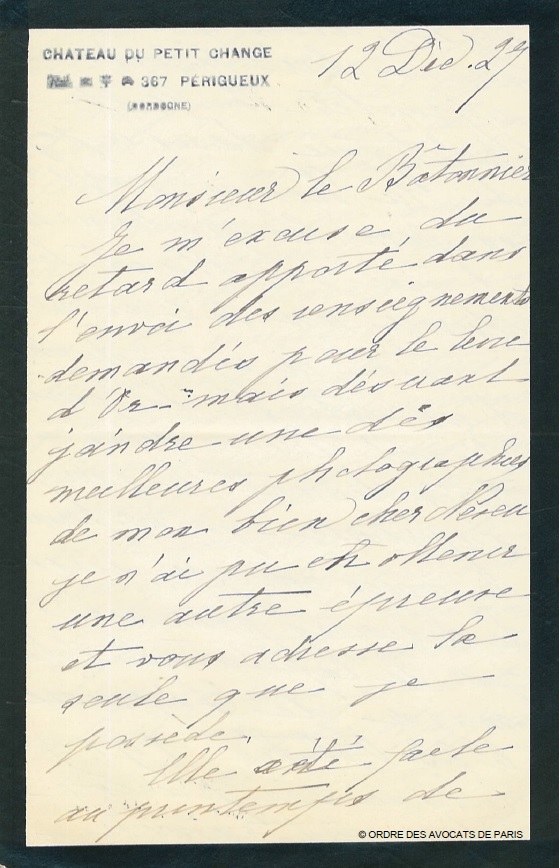 CHATEAU DU PETIT CHANGE
367 PÉRIGUEUX
(DORDOGNE)
12 Déc. 27
Monsieur le Bâtonnier
Je m'excuse du
retard apporté dans
l'envoi des renseignements
demandés pour le livre
d'Or - mais désirant
joindre une des
meilleures photographies
de mon bien cher Neveu
je n'ai pu en obtenir
une autre épreuve
et vous adresse la
seule que je
possède.
Elle a été faite
au printemps de
© ORDRE DES AVOCATS DE PARIS